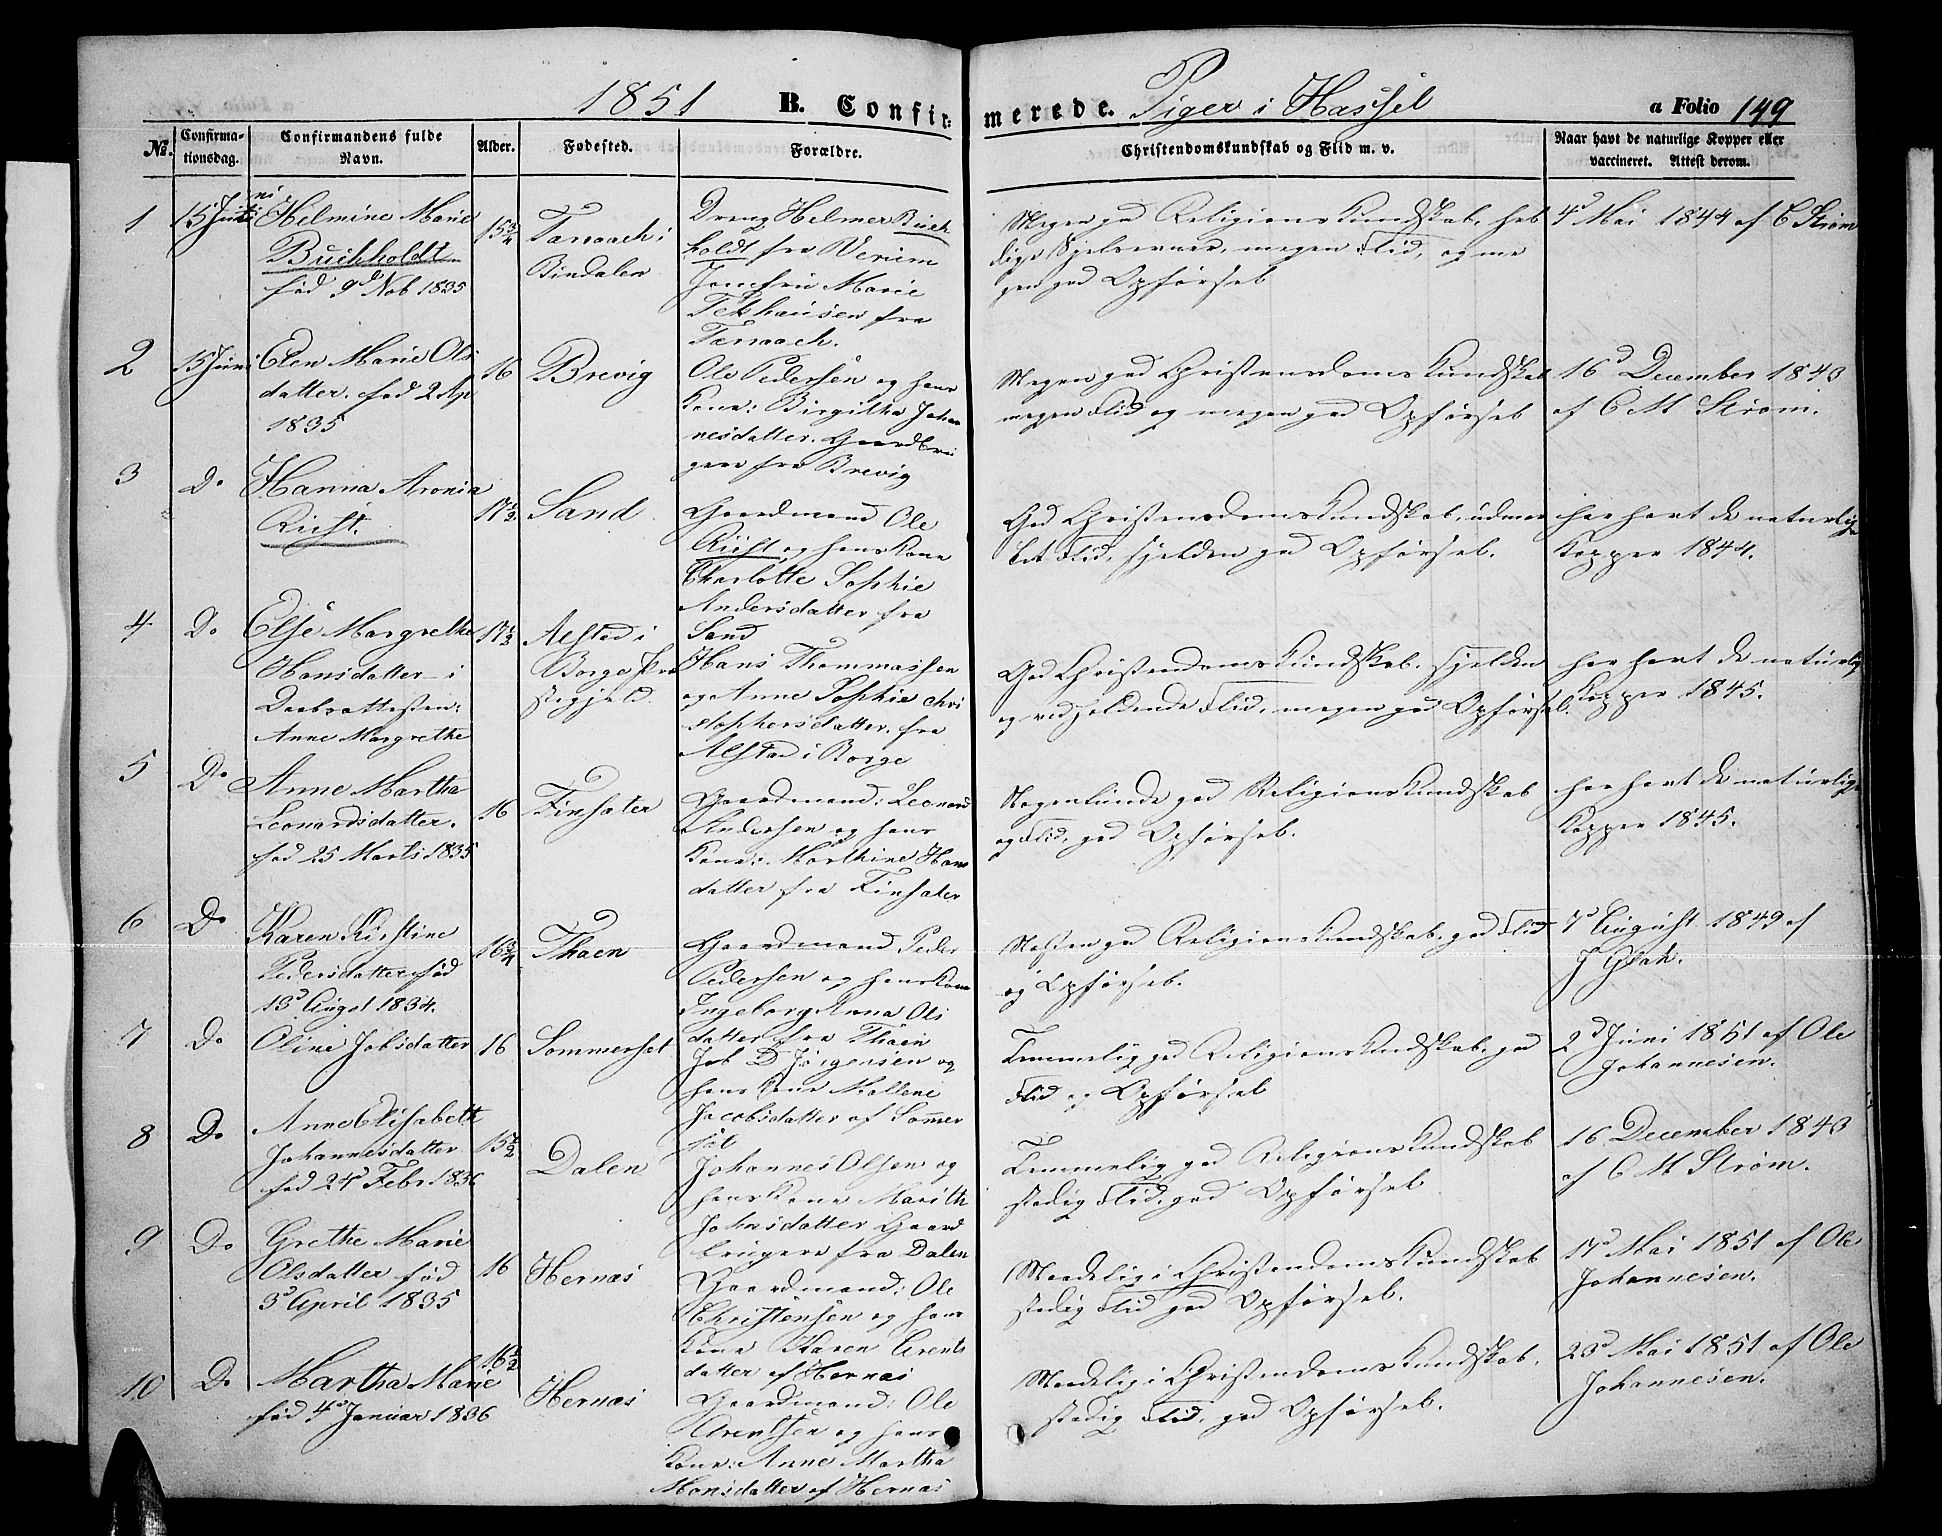 1851 B. Confirmerede. Piger i Hassel a Folio 149
No. Confirmationsdag. Confirmandens fulde Navn. Alder. Fødested. Forældre. Christendomskundskab og Flid m. v. Naar havt de naturlige Kopper eller vaccineret. Attest derom.
1 15 Juni
Helmine Marie
Buchholdt
fød 9d Nob 1835
15 3/4
Bindalen
Dreng Helmer Buch
holdt fra
Jomfru Marie
fra
Megen god Religions Kundskab, heb
dige Sjelsevner, megen Flid, og me
gen god Opførsel
4d Mai 1844 af C Strøm
2 15 Juni
Elen Marie Ols
datter. fød 2 Ap
1835
16
Brevig
Ole Pedersen og hans
Kone: Birgitha Johan
nesdatter. Gaardbru
gere fra Brevig
Megen god Christendoms Kundskab
megen Flid og megen god Opførsel
16d December 1843
af C M Strøm.
3 Do
Hanna Aronia
Rust.
17 1/2
Sand
Gaardmand Ole
Rust og hans Kone
Charlotte Sophie
Andersdatter fra
Sand
God Christendoms Kundskab, udmær
ket Flid, sjelden god Opførsel.
har havt de naturlige
Kopper 1844.
4 Do
Else Margrethe
Hansdatter i
Daabsattesten:
Anne Margrethe
17 1/2
Alstad i
Borge Præ
stegjeld.
Hans Thommassen
og Anne Sophie Chri
stophersdatter. fra
Alstad i Borge
God Christendoms Kundskab. sjelden
og vedholdende Flid, megen god Opførsel.
har havt de naturlig
Kopper 1845.
5 Do
Anne Martha
Leonardsdatter.
fød 25 Marts 1835
16
Finsæter
Gaardmand: Leonard
Andersen og hans
Kone: Marthine Hans
datter fra Finsæter
Nogenlunde god Religions Kundskab
og Flid, god Opførsel.
har havt de naturlige
Kopper 1845.
6 Do
Karen Kirstine
Pedersdatter fød
13d Augst 1834.
16 3/4
Thaen
Gaardmand Peder
Pedersen og hans Kone
Ingeborg Anna Ols
datter fra Thaen
Næsten god Religions Kundskab, god Flid
og Opførsel.
7d August 1849 af
J
7 Do
Oline Jobsdatter
16
Sommerset
Job D Jørgensen og
hans Kone Mallene
Jacobsdatter af Sommer
set
Temmelig god Religions Kundskab, god
Flid og Opførsel
2d Juni 1851 af Ole
Johannesen.
8 Do
Anne Elisabeth
Johannesdatter
fød 24d Febr 1836
15 1/2
Dalen
Johannes Olsen og
hans Kone Marith
Johnsdatter Gaard
brugere fra Dalen
Temmelig god Religions Kundskab
stadig Flid, god Opførsel
16 December 1843
af C M Strøm.
9 Do
Grethe Marie
Olsdatter fød
3d April 1835
16
Hernæs
Gaardmand: Ole
Christensen og hans
Kone Karen Arents
datter af Hernæs
Maadelig i Christendoms Kundskab
stadig Flid god Opførsel.
17d Mai 1851 af Ole
Johannesen.
10 Do
Martha Marie
fød 4d Januar 1836
16 1/2
Hernæs
Gaardmand: Ole
Arentsen og hans
Kone: Anne Martha
Monsdatter af Hernæs
Maadelig i Christendoms Kundskab,
stadig Flid, god Opførsel.
23d Mai 1851 af Ole
Johannesen.